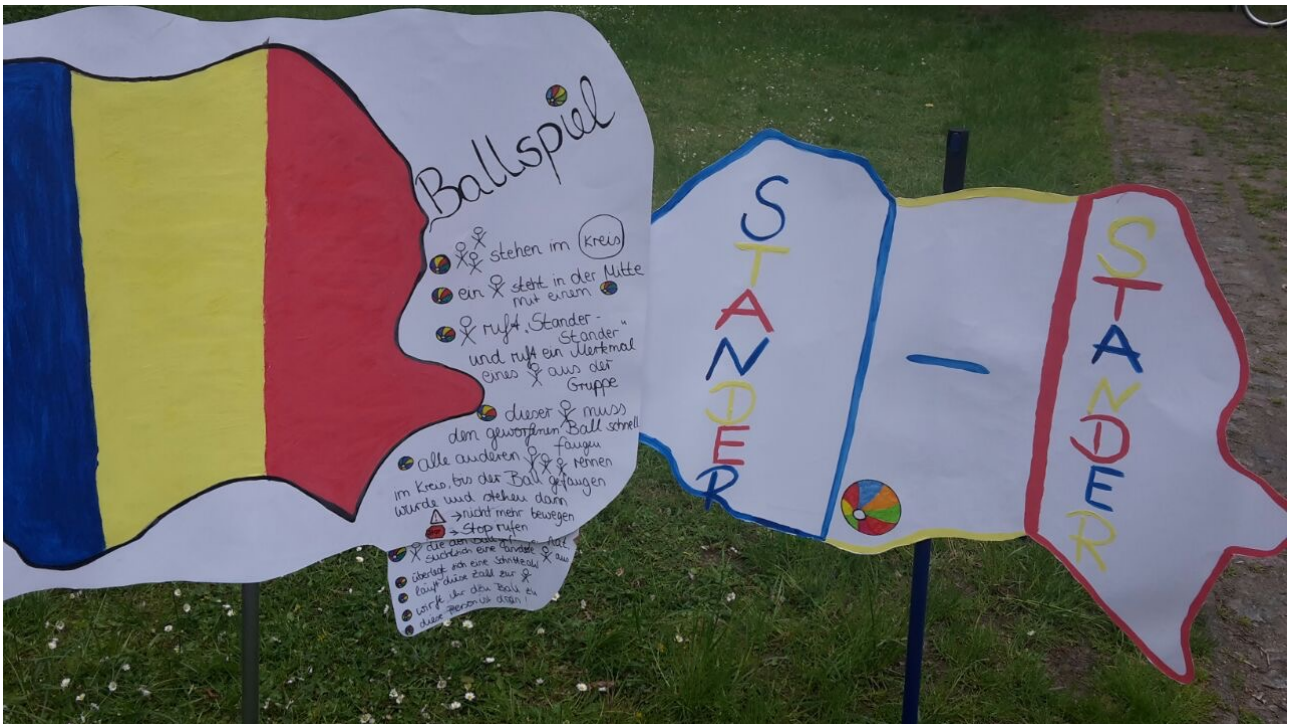 Ballspiel
stehen im Kreis
ein steht in der Mitte
mit einem
ruft „Stander-
Stander"
und ruft ein Merkmal
eines aus der
Gruppe
dieser muss
den geworfenen Ball schnell
fangen
alle anderen rennen
im Kreis, bis der Ball gefangen
wurde und stehen dann
→ nicht mehr bewegen
→ Stop rufen
die den hat
sucht sich eine andere aus
überlegt sich eine Schrittzahl
läuft diese Zahl zur
wirft ihr den Ball zu
diese Person ist dran!
STANDER
-
STANDER